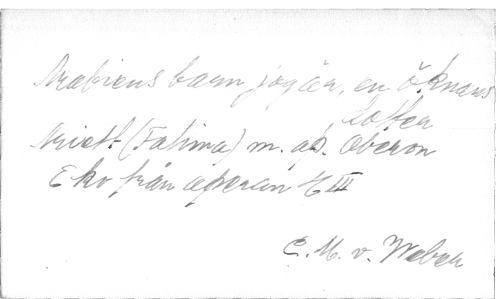 Arabiens barn jag är, en öknens
dotter
Ariett (Fatima) m. op. Oberon
Eko från operan H III
C. M. v. Weber